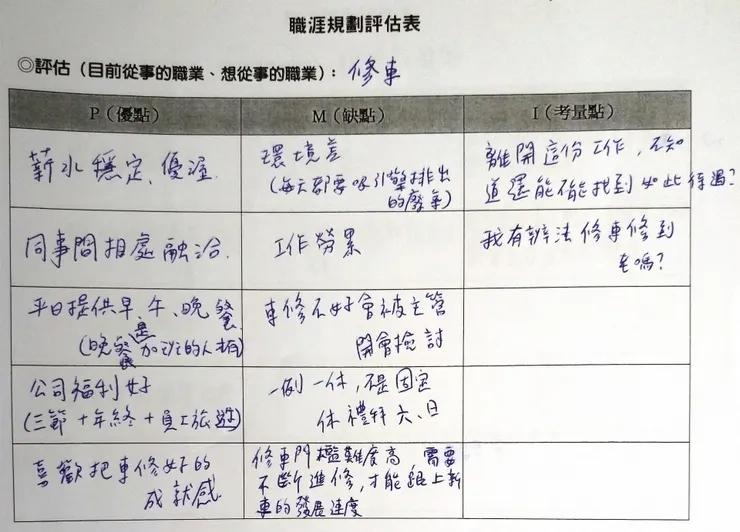 職涯規劃評估表
◎評估（目前從事的職業、想從事的職業）：修車
P（優點）
M（缺點）
I（考量點）
薪水穩定、優渥.
環境差
(每天都要吸引擎排出
的廢氣)
離開這份工作，不知
道還能不能找到如此待遇?
同事間相處融洽.
工作勞累
我有辦法修車修到
老嗎?
平日提供早、午、晚餐
(晚餐是加班的人才有)
車修不好會被主管
開會檢討
公司福利好
(三節+年終+員工旅遊)
一例一休，不是固定
休禮拜六、日
喜歡把車修好的
成就感
修車門檻難度高，需要
不斷進修，才能跟上新
車的發展速度